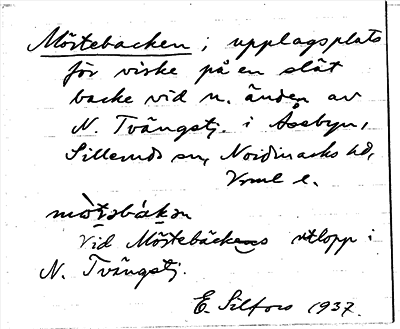 Mörtebacken; upplagsplats
för virke på en slät
backe vid n. änden av
N. Tvängstj. i Åsebyn,
Silleruds sn, Nordmarks hd,
Vrml l.
mòtəbákən
Vid Mörtebäckens utlopp i
N. Tvängstj.
E. Silfors 1937.